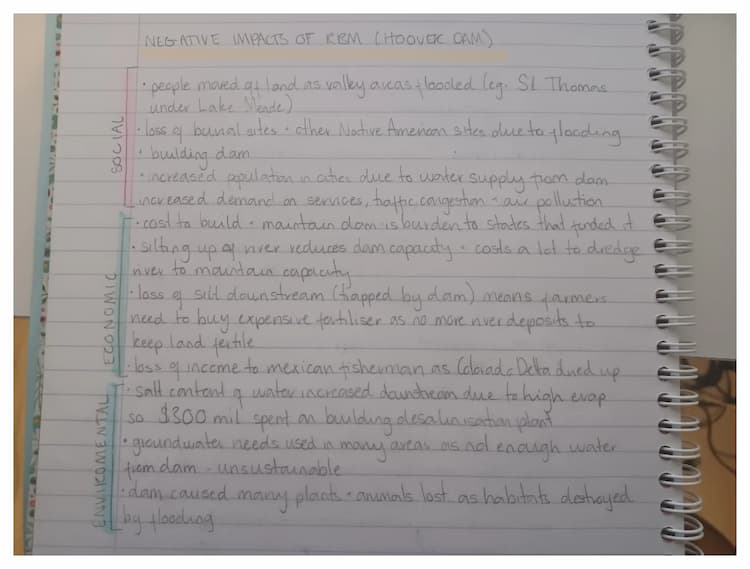 NEGATIVE IMPACTS OF RBM (HOOVER DAM)
SOCIAL
• people moved of land as valley areas flooded (eg. St Thomas
under Lake Meade)
• loss of burial sites + other Native American sites due to flooding
+ building dam
• increased population in cities due to water supply from dam
increased demand on services, traffic congestion + air pollution
ECONOMIC
• cost to build + maintain dam is burden to states that funded it
• silting up of river reduces dam capacity + costs a lot to dredge
river to maintain capacity
• loss of silt downstream (trapped by dam) means farmers
need to buy expensive fertiliser as no more river deposits to
keep land fertile
• loss of income to mexican fisherman as Colorado Delta dried up
ENVIROMENTAL
• salt content of water increased downstream due to high evap
so $300 mil spent on building desalinisation plant
• groundwater needs used in many areas as not enough water
from dam - unsustainable
• dam caused many plants + animals lost as habitats destroyed
by flooding